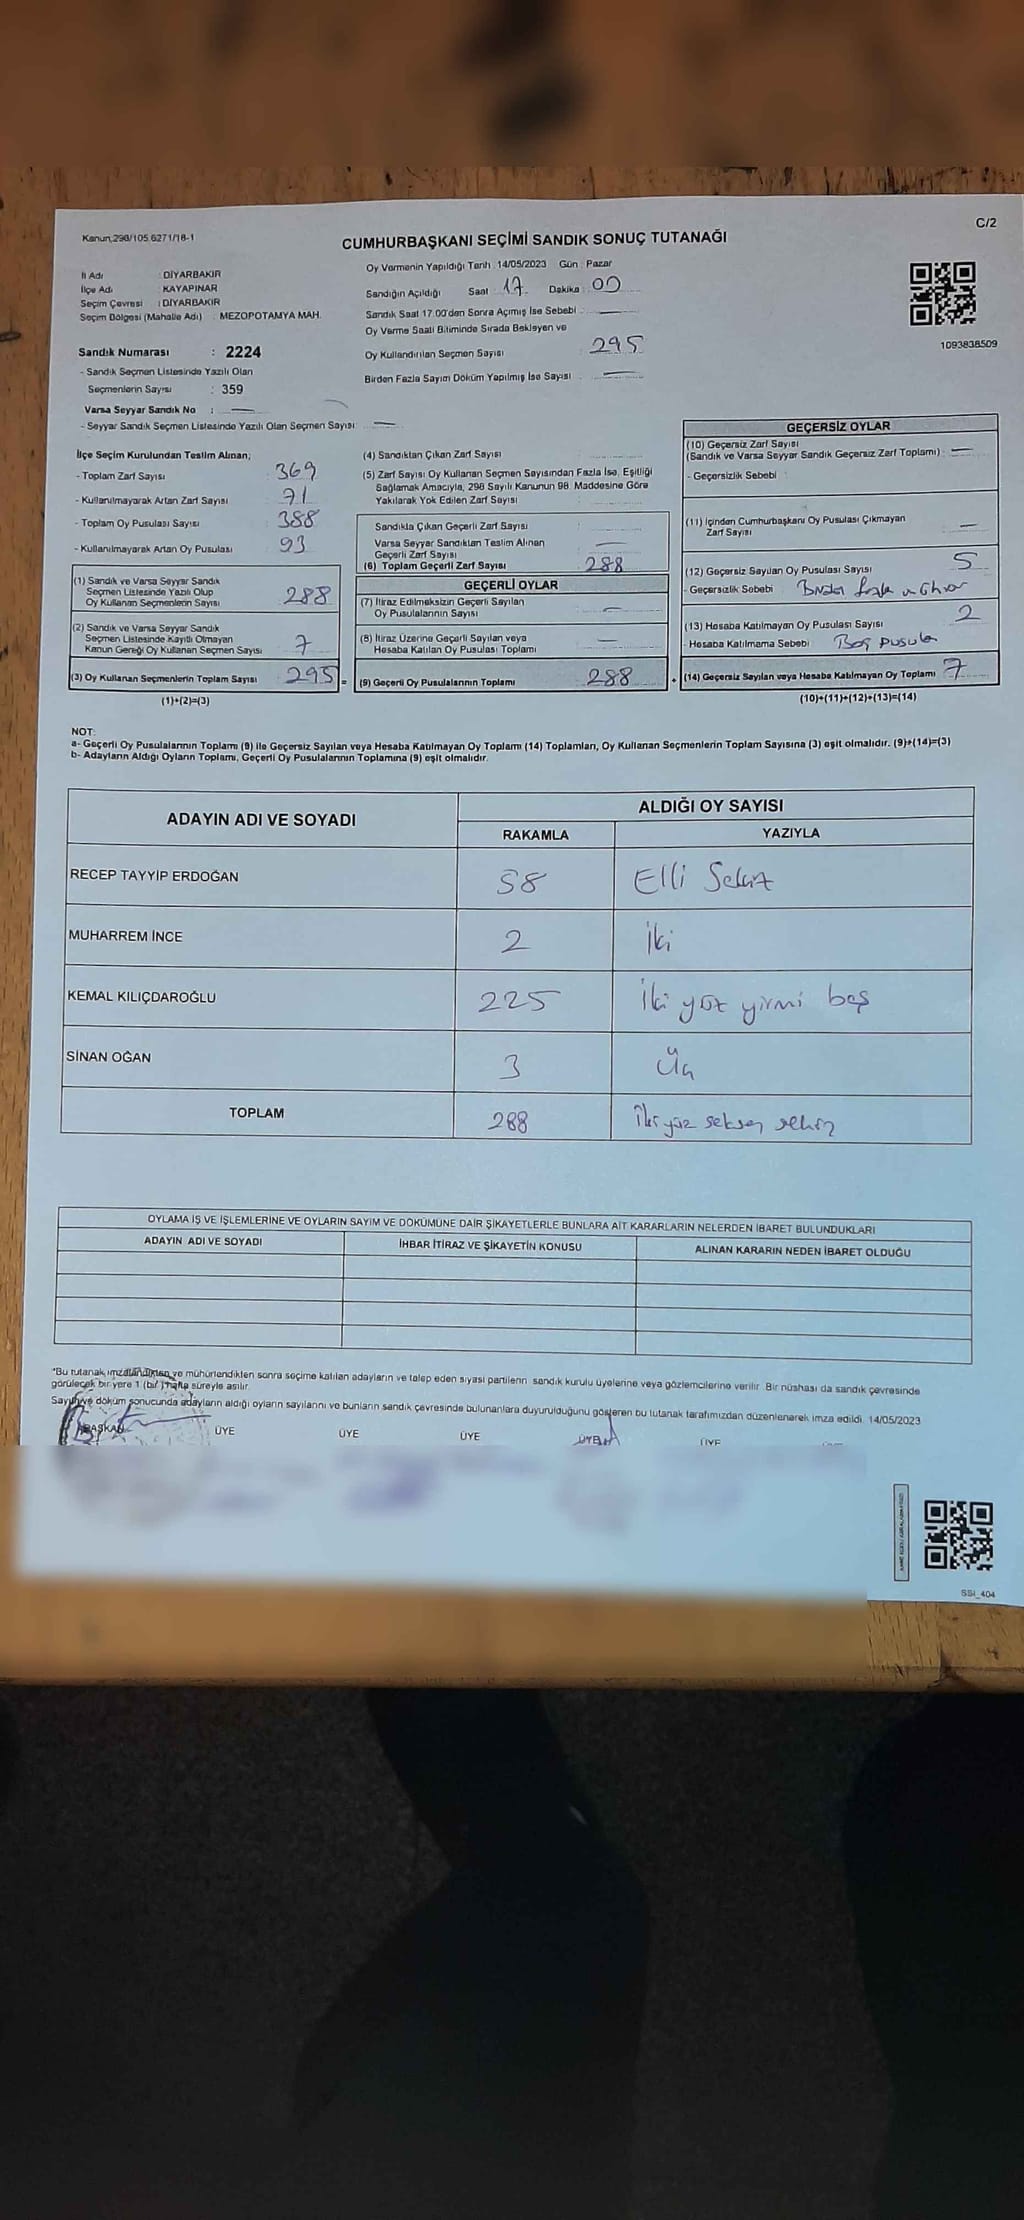 Kanun,298/105.6271/18-1
C/2
CUMHURBAŞKANI SEÇİMİ SANDIK SONUÇ TUTANAĞI
İl Adı : DİYARBAKIR
İlçe Adı : KAYAPINAR
Seçim Çevresi : DİYARBAKIR
Seçim Bölgesi (Mahalle Adı) : MEZOPOTAMYA MAH.
Sandık Numarası : 2224
- Sandık Seçmen Listesinde Yazılı Olan
Seçmenlerin Sayısı : 359
Varsa Seyyar Sandık No : —
- Seyyar Sandık Seçmen Listesinde Yazılı Olan Seçmen Sayısı: —
Oy Vermenin Yapıldığı Tarih : 14/05/2023 Gün : Pazar
Sandığın Açıldığı Saat : 17 Dakika : 00
Sandık Saat 17.00'den Sonra Açımış İse Sebebi : —
Oy Verme Saati Bitiminde Sırada Bekleyen ve
Oy Kullandırılan Seçmen Sayısı : 295
Birden Fazla Sayım Döküm Yapılmış İse Sayısı : —
1093838509
İlçe Seçim Kurulundan Teslim Alınan;
- Toplam Zarf Sayısı : 369
- Kullanılmayarak Artan Zarf Sayısı : 71
- Toplam Oy Pusulası Sayısı : 388
- Kullanılmayarak Artan Oy Pusulası : 93
(1) Sandık ve Varsa Seyyar Sandık
Seçmen Listesinde Yazılı Olup
Oy Kullanan Seçmenlerin Sayısı : 288
(2) Sandık ve Varsa Seyyar Sandık
Seçmen Listesinde Kayıtlı Olmayan
Kanun Gereği Oy Kullanan Seçmen Sayısı : 7
(3) Oy Kullanan Seçmenlerin Toplam Sayısı : 295 =
(1)+(2)=(3)
(4) Sandıktan Çıkan Zarf Sayısı :
(5) Zarf Sayısı Oy Kullanan Seçmen Sayısından Fazla İse, Eşitliği
Sağlamak Amacıyla, 298 Sayılı Kanunun 98. Maddesine Göre
Yakılarak Yok Edilen Zarf Sayısı :
Sandıkla Çıkan Geçerli Zarf Sayısı :
Varsa Seyyar Sandıktan Teslim Alınan
Geçerli Zarf Sayısı : —
(6) Toplam Geçerli Zarf Sayısı : 288
GEÇERLİ OYLAR
(7) İtiraz Edilmeksizin Geçerli Sayılan
Oy Pusulalarının Sayısı : —
(8) İtiraz Üzerine Geçerli Sayılan veya
Hesaba Katılan Oy Pusulası Toplamı : —
(9) Geçerli Oy Pusulalarının Toplamı : 288 +
GEÇERSİZ OYLAR
(10) Geçersiz Zarf Sayısı
(Sandık ve Varsa Seyyar Sandık Geçersiz Zarf Toplamı) : —
- Geçersizlik Sebebi :
(11) İçinden Cumhurbaşkanı Oy Pusulası Çıkmayan
Zarf Sayısı : —
(12) Geçersiz Sayılan Oy Pusulası Sayısı : 5
- Geçersizlik Sebebi : Birden fazla
(13) Hesaba Katılmayan Oy Pusulası Sayısı : 2
- Hesaba Katılmama Sebebi : Boş pusula
(14) Geçersiz Sayılan veya Hesaba Katılmayan Oy Toplamı : 7
(10)+(11)+(12)+(13)=(14)
NOT:
a- Geçerli Oy Pusulalarının Toplamı (9) ile Geçersiz Sayılan veya Hesaba Katılmayan Oy Toplamı (14) Toplamları, Oy Kullanan Seçmenlerin Toplam Sayısına (3) eşit olmalıdır. (9)+(14)=(3)
b- Adayların Aldığı Oyların Toplamı, Geçerli Oy Pusulalarının Toplamına (9) eşit olmalıdır.
ADAYIN ADI VE SOYADI ALDIĞI OY SAYISI
RAKAMLA YAZIYLA
RECEP TAYYİP ERDOĞAN 58 Elli Sekiz
MUHARREM İNCE 2 İki
KEMAL KILIÇDAROĞLU 225 İki yüz yirmi beş
SİNAN OĞAN 3 Üç
TOPLAM 288 İki yüz seksen sekiz
OYLAMA İŞ VE İŞLEMLERİNE VE OYLARIN SAYIM VE DÖKÜMÜNE DAİR ŞİKAYETLERLE BUNLARA AİT KARARLARIN NELERDEN İBARET BULUNDUKLARI
ADAYIN ADI VE SOYADI İHBAR İTİRAZ VE ŞİKAYETİN KONUSU ALINAN KARARIN NEDEN İBARET OLDUĞU
*Bu tutanak imzalandıktan ve mühürlendikten sonra seçime katılan adayların ve talep eden siyasi partilerin sandık kurulu üyelerine veya gözlemcilerine verilir. Bir nüshası da sandık çevresinde
görülecek bir yere 1 (bir) hafta süreyle asılır.
Sayım ve döküm sonucunda adayların aldığı oyların sayılarını ve bunların sandık çevresinde bulunanlara duyurulduğunu gösteren bu tutanak tarafımızdan düzenlenerek imza edildi. 14/05/2023
BAŞKAN ÜYE ÜYE ÜYE ÜYE ÜYE
SSI_404